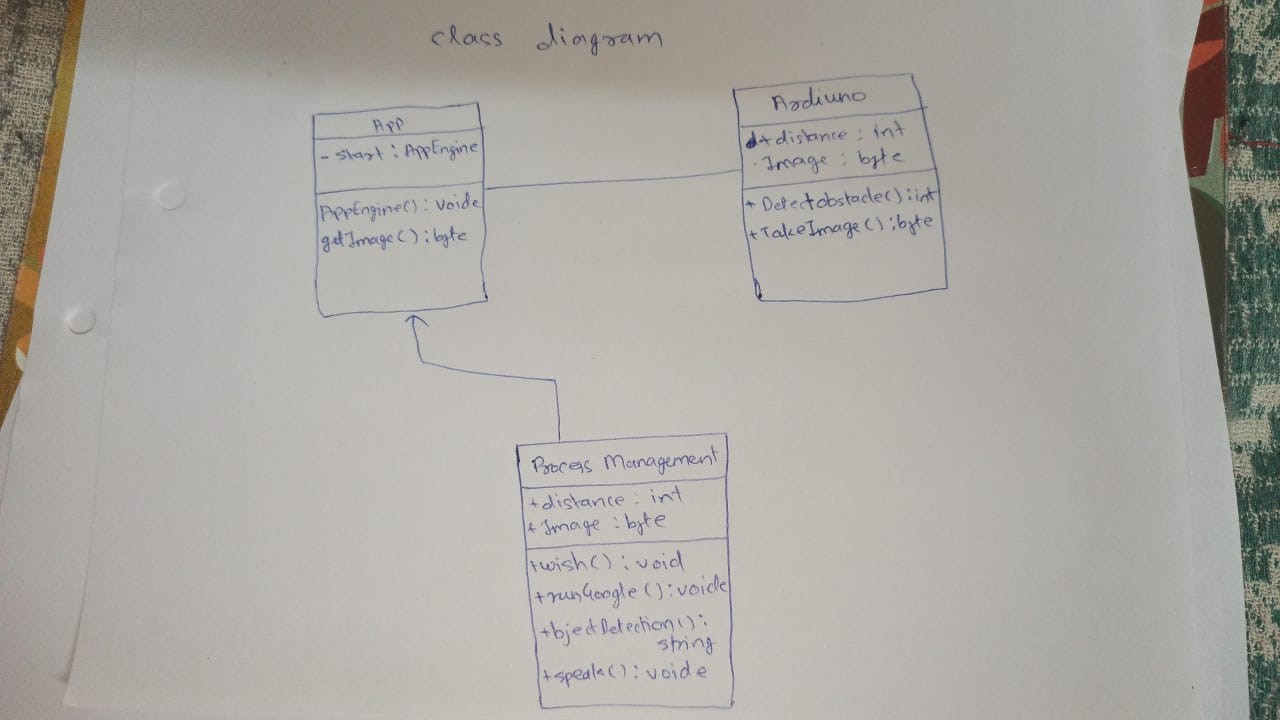 class diagram
App
- start : AppEngine
AppEngine() : voide
getImage() : byte
Ardiuno
+ distance : int
. Image : byte
+ Detectobstacle() : int
+ TakeImage() : byte
Process Management
+ distance : int
+ Image : byte
+ wish() : void
+ runGoogle() : voide
+ bjectDetection() :
string
+ speak() : voide